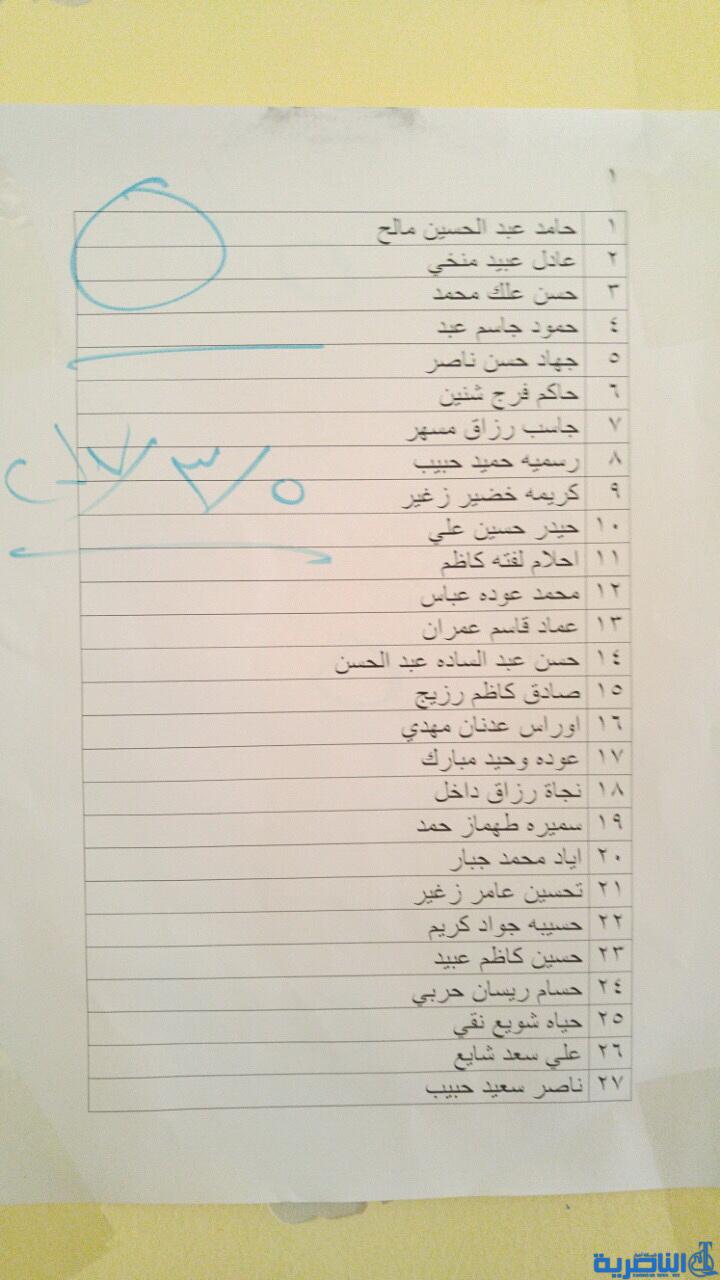 ١
١ حامد عبد الحسين مالح
٢ عادل عبيد منخي
٣ حسن علك محمد
٤ حمود جاسم عبد
٥ جهاد حسن ناصر
٦ حاكم فرج شنين
٧ جاسب رزاق مسهر
٨ رسميه حميد حبيب
٩ كريمه خضير زغير
١٠ حيدر حسين علي
١١ احلام لفته كاظم
١٢ محمد عوده عباس
١٣ عماد قاسم عمران
١٤ حسن عبد الساده عبد الحسن
١٥ صادق كاظم رزيج
١٦ اوراس عدنان مهدي
١٧ عوده وحيد مبارك
١٨ نجاة رزاق داخل
١٩ سميره طهماز حمد
٢٠ اياد محمد جبار
٢١ تحسين عامر زغير
٢٢ حسيبه جواد كريم
٢٣ حسين كاظم عبيد
٢٤ حسام ريسان حربي
٢٥ حياه شويع نقي
٢٦ علي سعد شايع
٢٧ ناصر سعيد حبيب
الناصرية